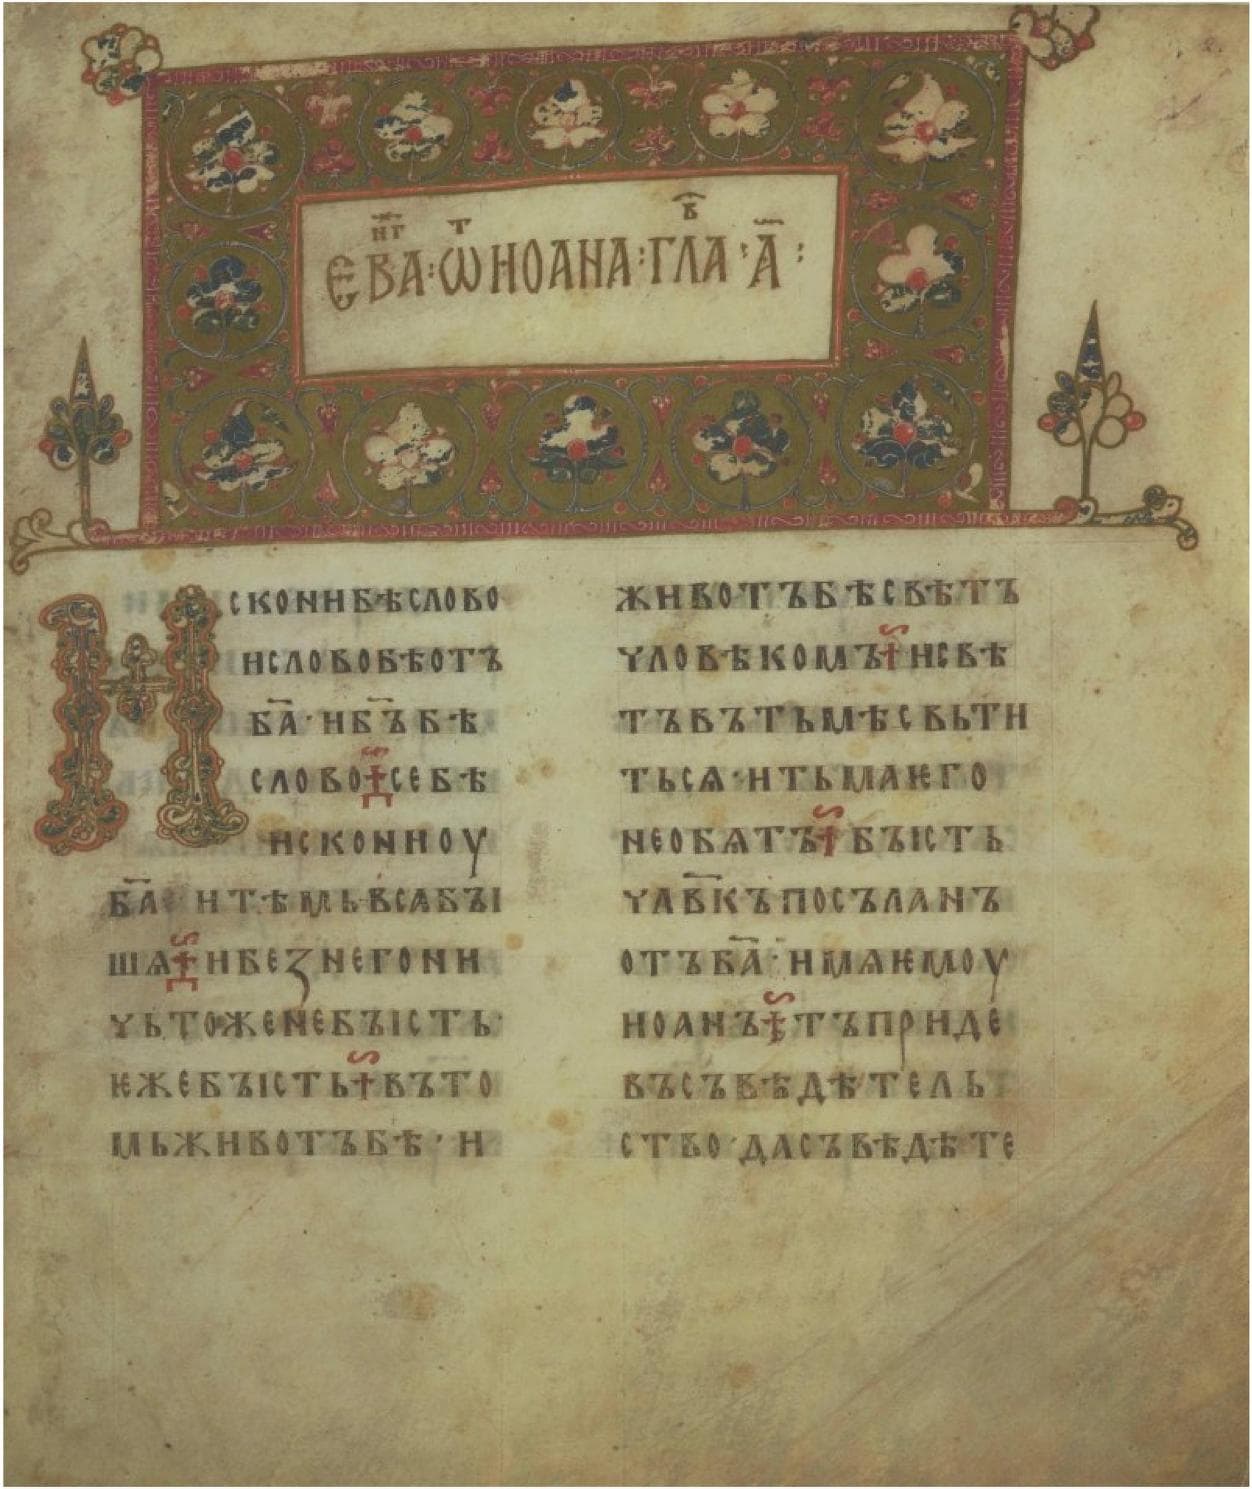 ЕВА҃НГ:ѾИОАНА:ГЛ҃ВА·А҃:
ИСКОНИБѢСЛОВО
ИСЛОВОБѢОТЪ
БА҃·ИБ҃ЪБѢ
СЛОВО·СЕБѢ
ИСКОНИОУ
БА҃·ИТѢМЬВСѦБЪІ
ШѦ·ИБЕЗНЕГОНИ
ЧЬТОЖЕНЕБЪІСТЬ·
ѤЖЕБЪІСТЬ·ВЪТО
МЬЖИВОТЪБѢ·И
ЖИВОТЪБѢСВѢТЪ
ЧЛОВѢКОМЪ·ИСВѢ
ТЪВЪТЬМѢСВЬТИ
ТЬСѦ·ИТЬМАѤГО
НЕОБѦТЪ·БЪІСТЬ
ЧЛВ҃КЪПОСЪЛАНЪ
ОТЪБА҃·ИМѦѤМОУ
ИОАНЪ·ТЪПРИДЕ
ВЪСЪВѢДѢТЕЛЬ
СТВО·ДАСЪВѢДѢТЕ